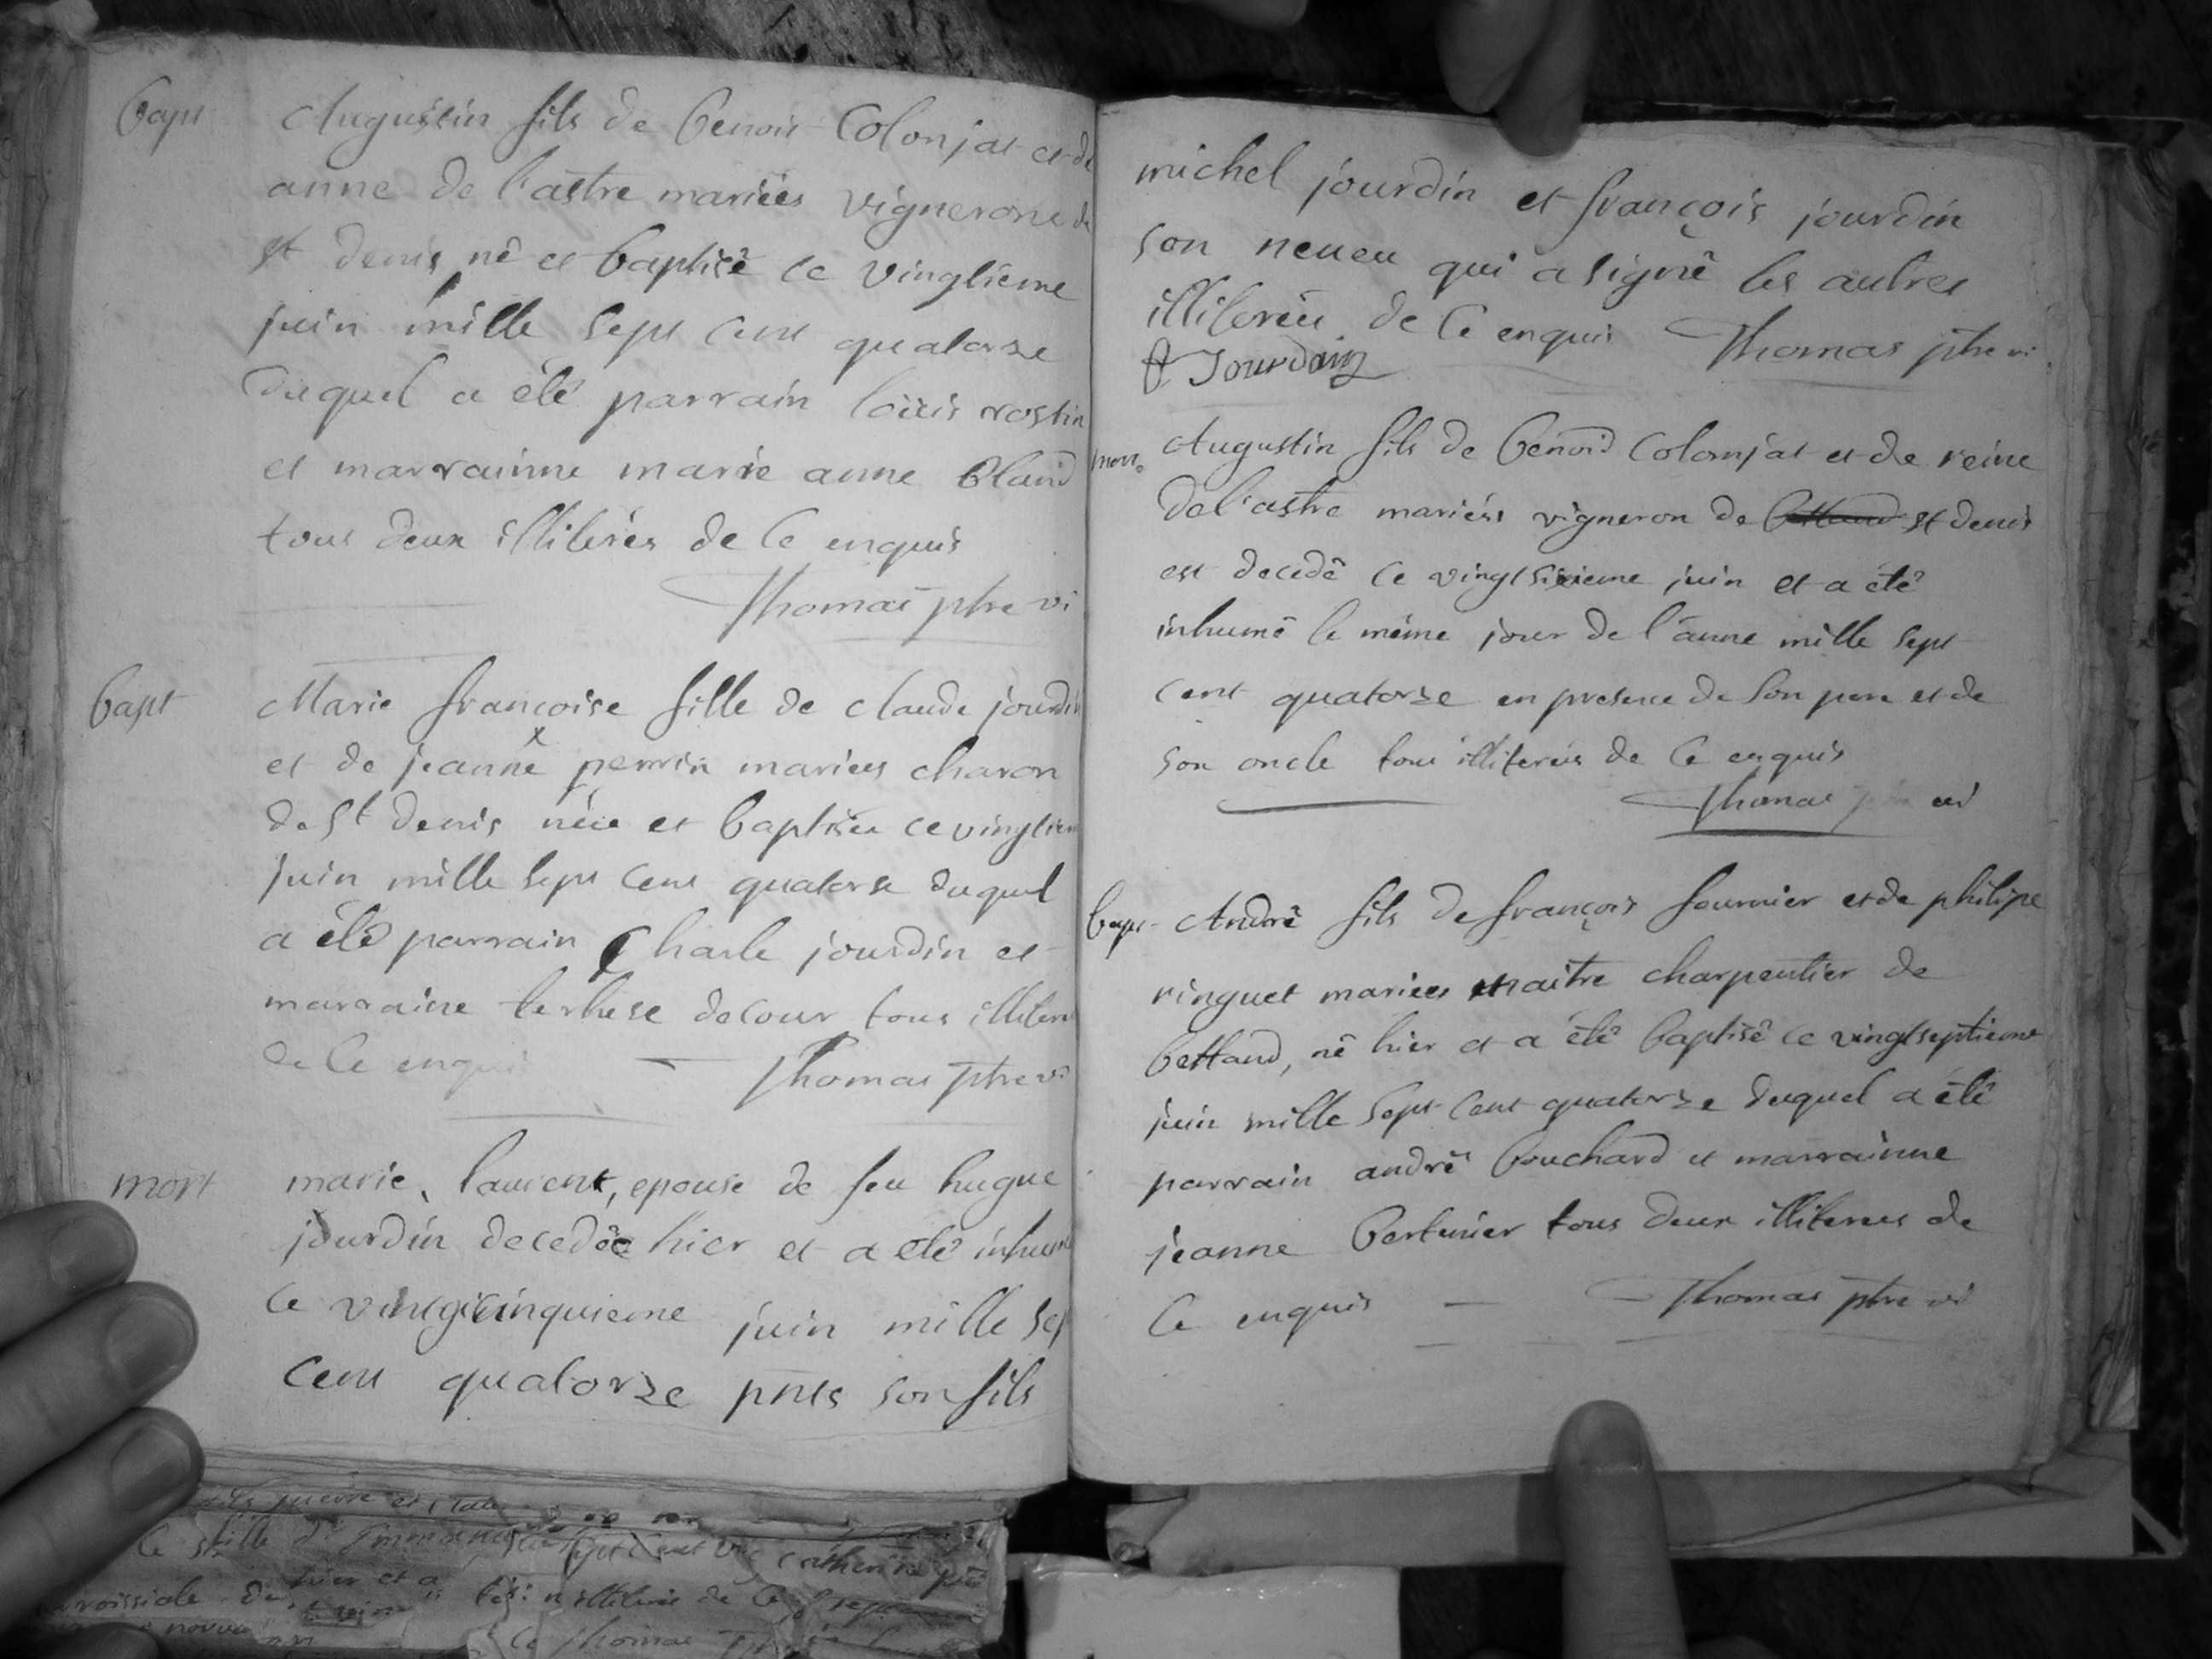 bapt Augustin fils de benoit Colonjat et de
anne de l'astre mariées vignerons de
st denis né et baptisé ce vingtieme
juin mille sept cent quatorze
duquel a été parrain louis rostin
et marrainne marie anne bland
tous deux illiterés de ce enquis
Thomas ptre vi
bapt Marie françoise fille de claude jourdin
et de jeanne perrin mariees charon
de St denis néie et baptisée ce vingtiem
juin mille sept cent quatorse duquel
a été parrain Charle jourdin et
marraine terhese decour tous illiteré
de ce enquis Thomas ptre vi
mort marie laurent, epouse de feu hugue
jourdin decedée hier et a été inhumé
ce vintgicinquieme juin mille sep
cent quatorze pnts son fils
michel jourdin et françois jourdin
son neueu qui a signé les autres
illiterées de ce enquis Thomas ptre vi
f Jourdain
mort Augustin fils de benoid Colomjat et de reine
del'astre mariéss vigneron de st denis
est decedé ce vingtsixieme juin et a été
inhumé le même jour de l'anne mille sept
cent quatorze en presence de son pere et de
son oncle tous illiterés de ce enquis
Thomas vi
bapt André fils de françois fournier et de philipe
ringuet mariees maitre charpentier de
bettand, né hier et a été baptisé ce vingtseptieme
juin mille sept cent quatorze duquel a été
parrain andré bouchard et marrainne
jeanne bertunier tous deux illiterees de
ce enquis Thomas ptre vi